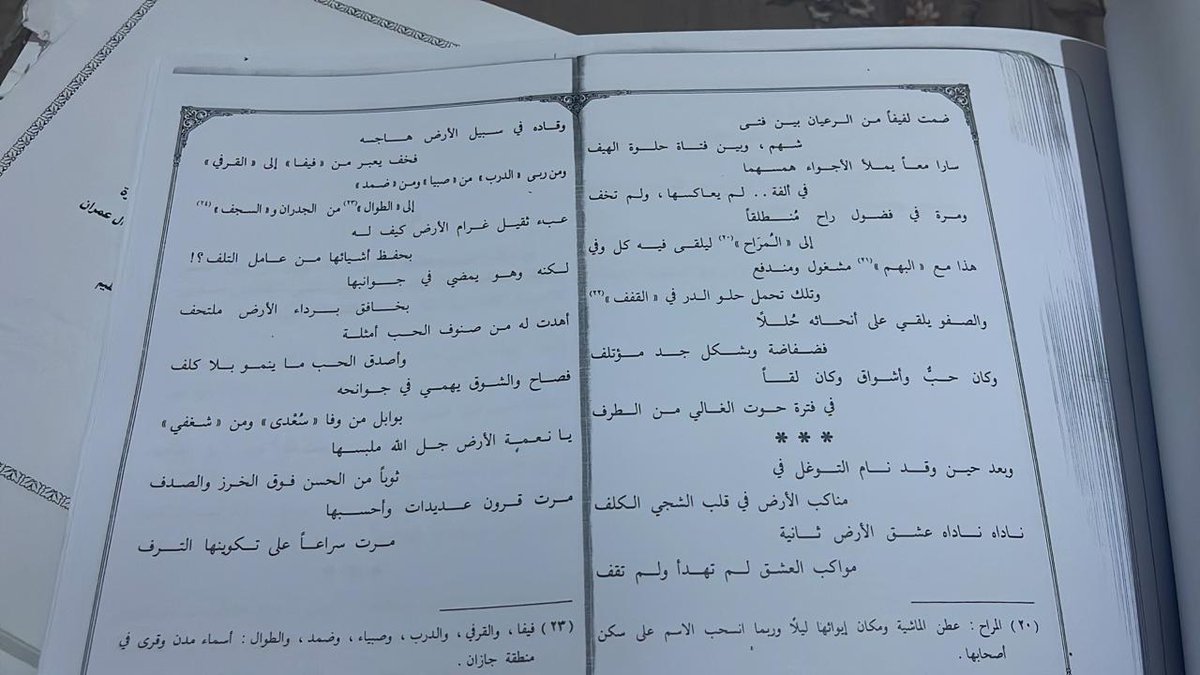 ضمت لفيفاً من الرعيان بين فتى
شهم ، وبين فتاة حلوة الهيف
سارا معاً يملأ الأجواء همسهما
في ألفة . . لم يعاكسها ، ولم تخف
ومرة في فضول راح مُنـطلقاً
إلى « الـمُرَاح »(٢٠) ليلقى فيه كل وفي
هذا مع « البهم »(٢١) مشغول ومندفع
وتلك تحمل حلو الدر في « القفف »(٢٢)
والصفو يلقي على أنحائه حُللًا
فضفاضة وبشكل جد مؤتلف
وكان حبٌّ وأشواق وكان لقاً
في فترة حوت الغالي من الطرف
* * *
وبعد حين وقد نام التوغل في
مناكب الأرض في قلب الشجي الكلف
ناداه ناداه عشق الأرض ثانية
مواكب العشق لم تهدأ ولم تقف
(٢٠) المراح : عطن الماشية ومكان إيوائها ليلًا وربما انسحب الاسم على سكن
أصحابها .
وقاده في سبيل الأرض هاجسه
فخف يعبر من « فيفا » إلى « القرفي »
ومن ربى « الدرب » من « صبيا » ومن « ضمد »
إلى « الطوال »(٢٣) من الجدران و « السجف »(٢٤)
عبء ثقيل غرام الأرض كيف له
بحفظ أشيائها من عامل التلف ؟!
لكنه وهو يمضي في جوانبها
بخافق برداء الأرض ملتحف
أهدت له من صنوف الحب أمثلة
وأصدق الحب ما ينمو بلا كلف
فصاح والشوق يهمي في جوانحه
بوابل من وفا « سُعْدى » ومن « شغفي »
يا نعمية الأرض جل الله ملبسها
ثوباً من الحسن فوق الخرز والصدف
مرت قرون عديدات وأحسبها
مرت سراعاً على تكوينها الترف
(٢٣) فيفا ، والقرفي ، والدرب ، وصبياء ، وضمد ، والطوال : أسماء مدن وقرى في
منطقة جازان .
ل عصران